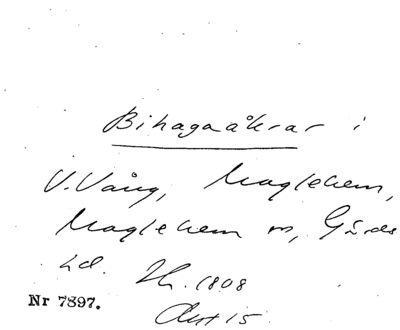 Bihagaåkrar i
V. Vång, Maglehem,
Maglehem sn, Gärds
hd. Zh. 1808
Nr 7897.
Akt 15